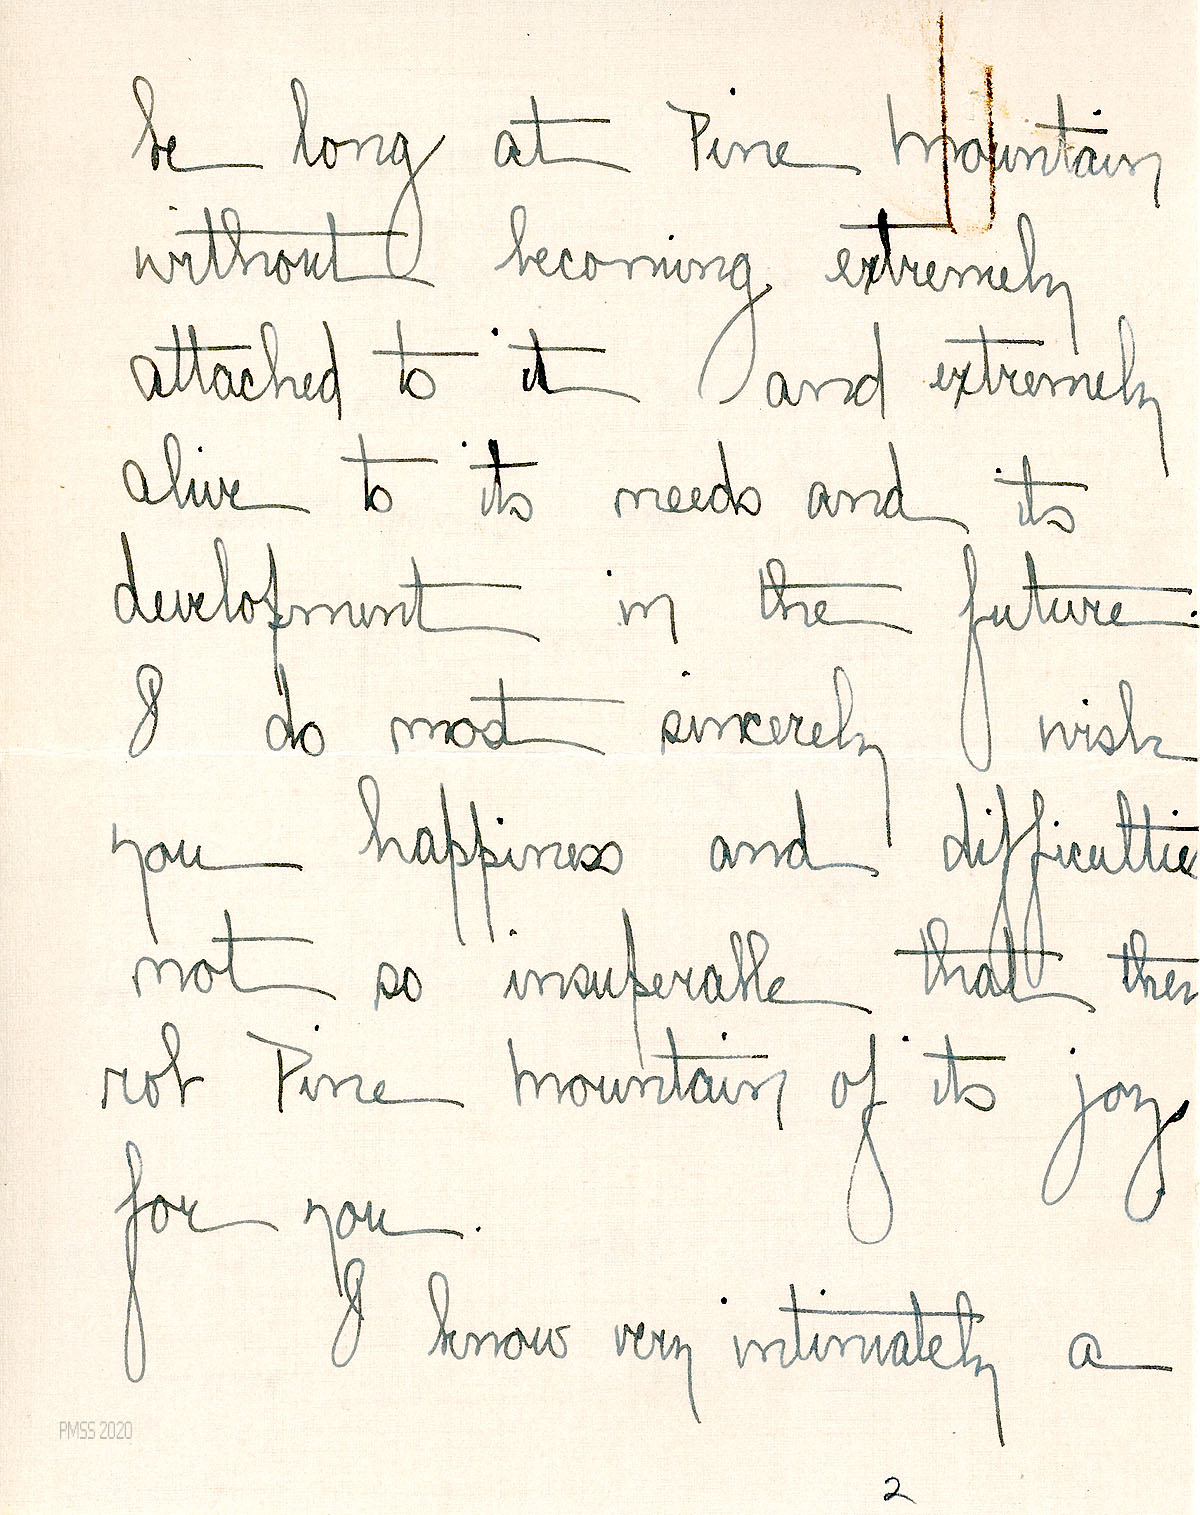 be long at Pine Mountain
without becoming extremely
attached to it and extremely
alive to its needs and its
development in the future.
I do most sincerely wish
you happiness and difficultie
not so insuperable that they
rob Pine Mountain of its joy
for you.
I know very intimately a
PMSS 2020
2